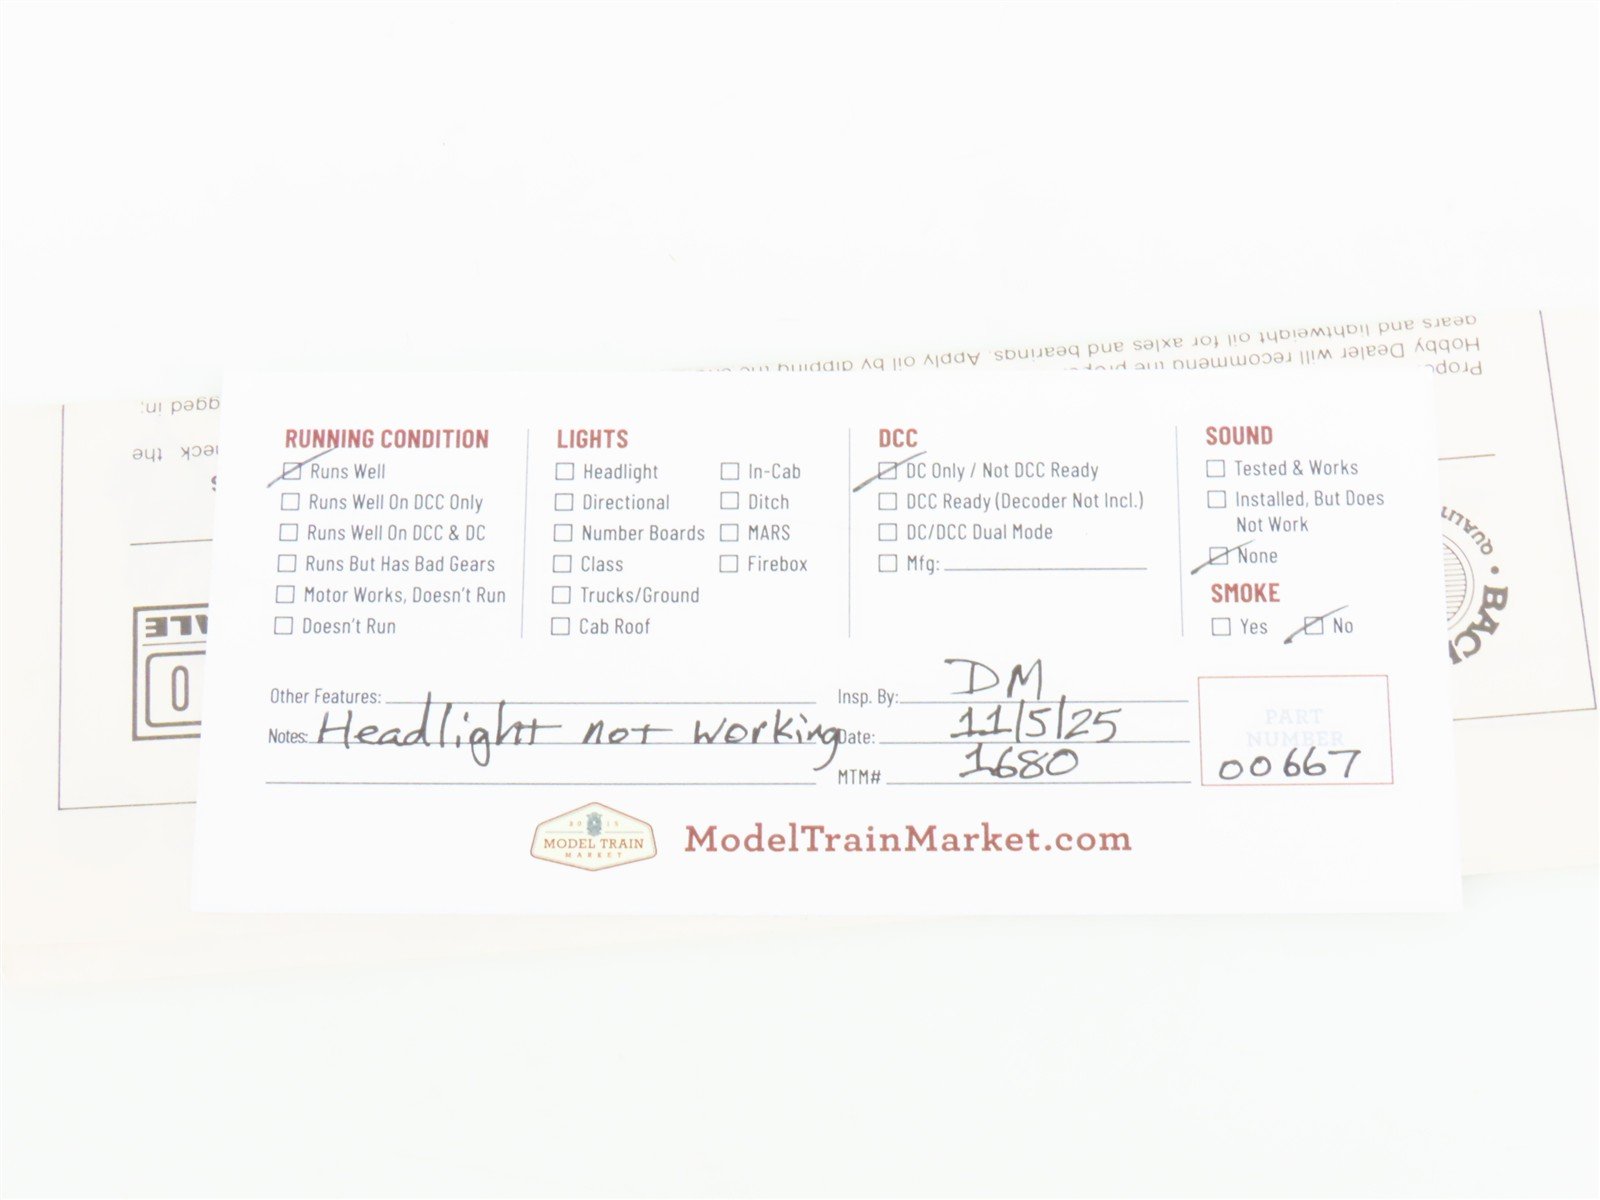 gears and lightweight oil for axles and bearings. Apply oil by dipping
Hobby Dealer will recommend the
gged in;
the
RUNNING CONDITION
Runs Well
Runs Well On DCC Only
Runs Well On DCC & DC
Runs But Has Bad Gears
Motor Works, Doesn't Run
Doesn't Run
LIGHTS
Headlight
Directional
Number Boards
Class
Trucks/Ground
Cab Roof
In-Cab
Ditch
MARS
Firebox
DCC
DC Only / Not DCC Ready
DCC Ready (Decoder Not Incl.)
DC/DCC Dual Mode
Mfg:
SOUND
Tested & Works
Installed, But Does
Not Work
None
SMOKE
Yes No
Other Features:
Notes: Headlight not working
Insp. By: DM
Date: 11/5/25
MTM# 1680
PART
NUMBER
00667
2015
MODEL TRAIN
MARKET
ModelTrainMarket.com